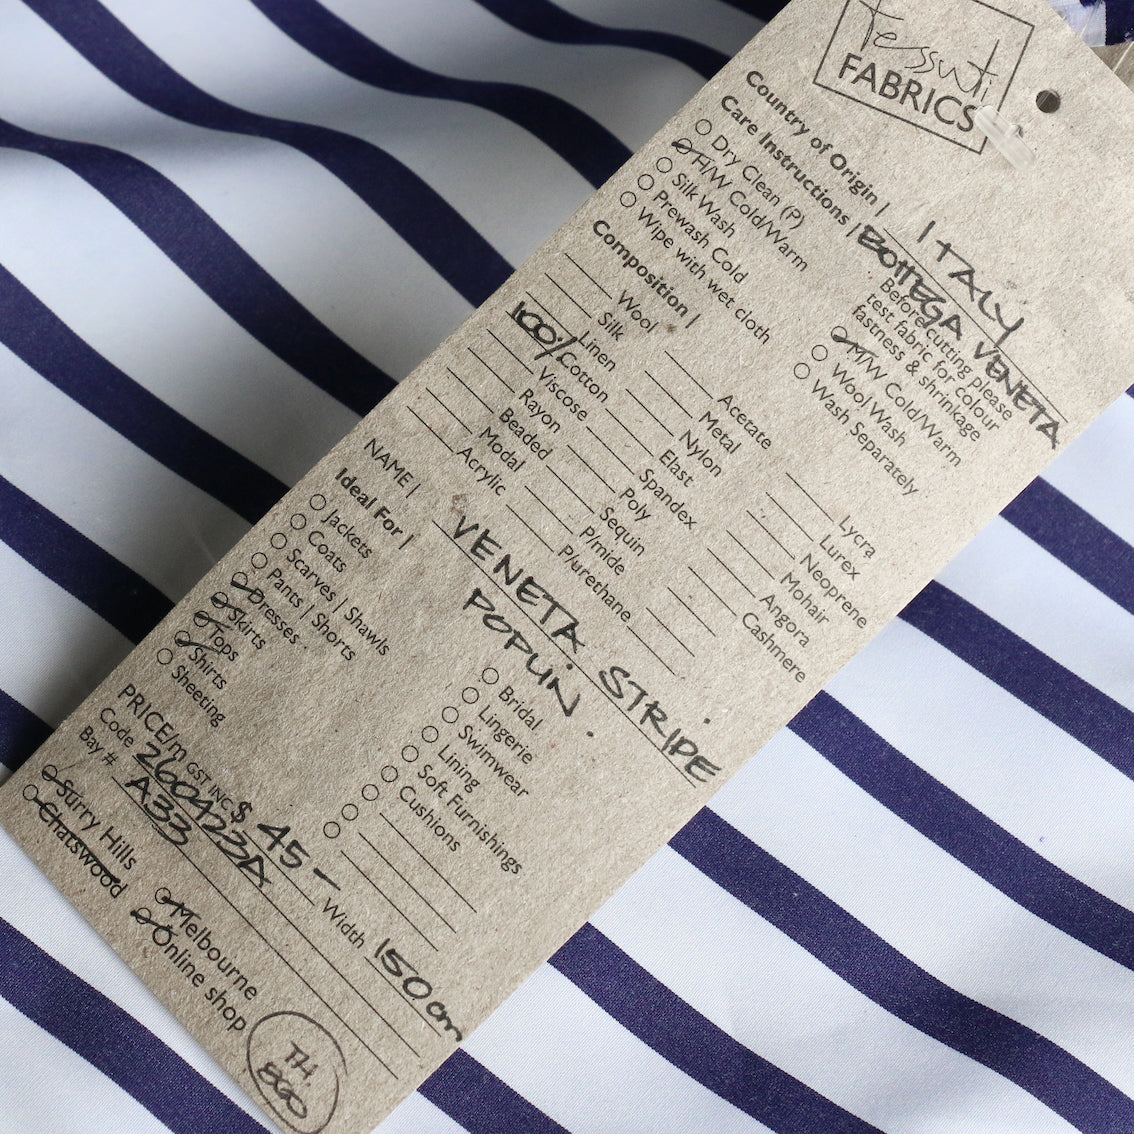 Tessuti
FABRICS
Country of Origin | ITALY
Care Instructions | BOTTEGA VENETA
Dry Clean (P)
H/W Cold/Warm
Silk Wash
Prewash Cold
Wipe with wet cloth
Before cutting please
test fabric for colour
fastness & shrinkage
M/W Cold/Warm
Wool Wash
Wash Separately
Composition |
Wool
Silk
Linen
100% Cotton
Viscose
Rayon
Beaded
Modal
Acrylic
Acetate
Metal
Nylon
Elast
Spandex
Poly
Sequin
P/mide
P/urethane
Lycra
Lurex
Neoprene
Mohair
Angora
Cashmere
NAME | VENETA STRIPE
POPLIN
Ideal For |
Jackets
Coats
Scarves | Shawls
Pants | Shorts
Dresses
Skirts
Tops
Shirts
Sheeting
Bridal
Lingerie
Swimwear
Lining
Soft Furnishings
Cushions
PRICE/m GST INC $ 45 - Width 150cm
Code 260423A
Bay # A33
Surry Hills
Chatswood
Melbourne
Online shop